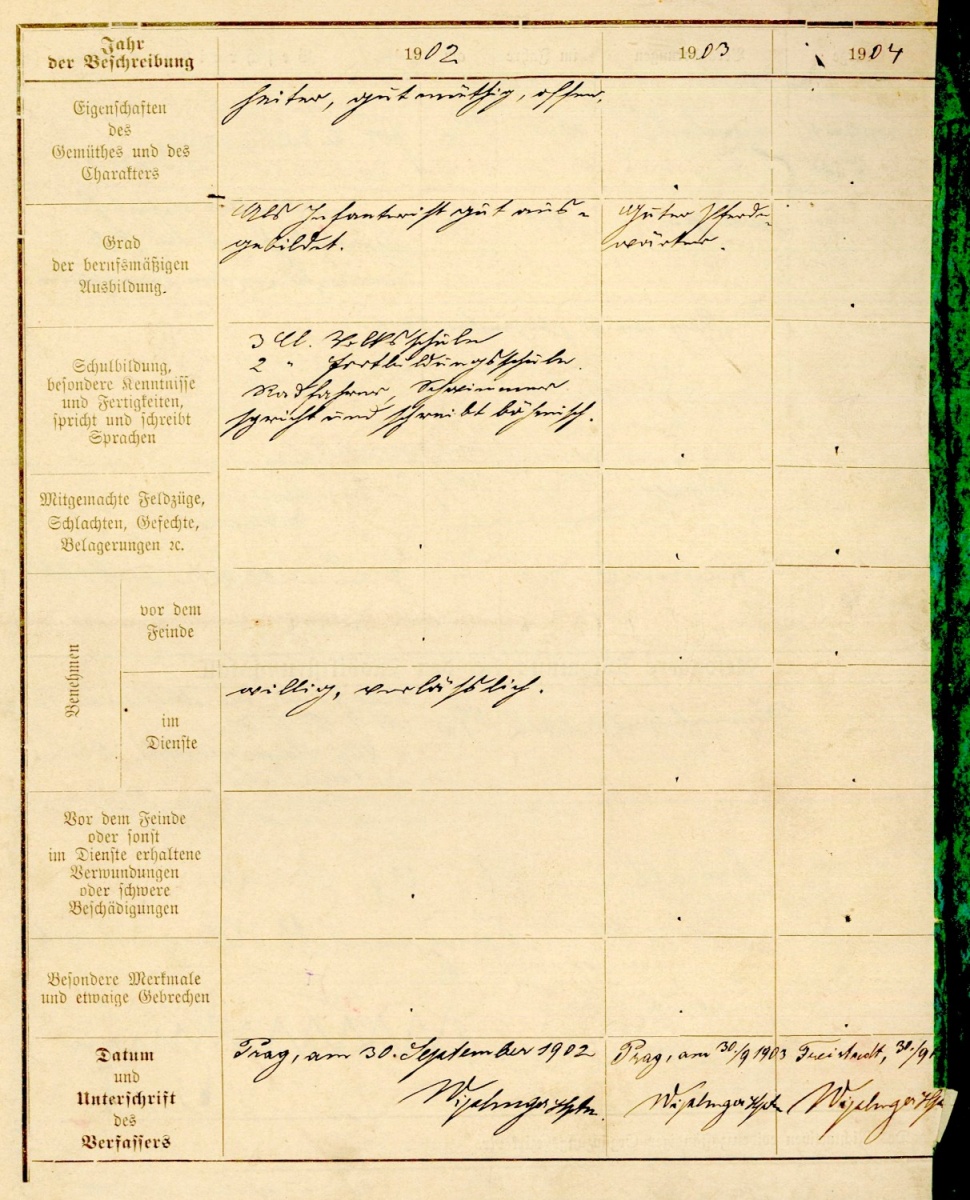 Jahr
der Beschreibung
1902
1903
1904
Eigenschaften
des
Gemüthes und des
Charakters
heiter, gutmüthig, offen.
Grad
der berufsmäßigen
Ausbildung.
Als Infanterist gut aus-
gebildet.
Guter Pferde-
wärter.
Schulbildung,
besondere Kenntnisse
und Fertigkeiten,
spricht und schreibt
Sprachen
3 Cl. Volksschule
2 " Fortbildungsschule.
Radfahrer, Schwimmer
spricht und schreibt böhmisch.
Mitgemachte Feldzüge,
Schlachten, Gefechte,
Belagerungen ꝛc.
Benehmen
vor dem
Feinde
im
Dienste
willig, verläßlich.
Vor dem Feinde
oder sonst
im Dienste erhaltene
Verwundungen
oder schwere
Beschädigungen
Besondere Merkmale
und etwaige Gebrechen
Datum
und
Unterschrift
des
Verfassers
Prag, am 30. September 1902
Hptm.
Prag, am 30/9 1903
Hptm
Freistadt, 30./9